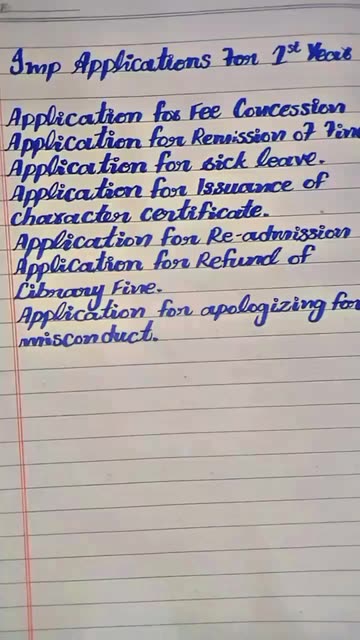 Imp Applications For 1st Year
Application for Fee Concession
Application for Remission of Fine
Application for sick leave.
Application for Issuance of
character certificate.
Application for Re-admission
Application for Refund of
Library Fine.
Application for apologizing for
misconduct.